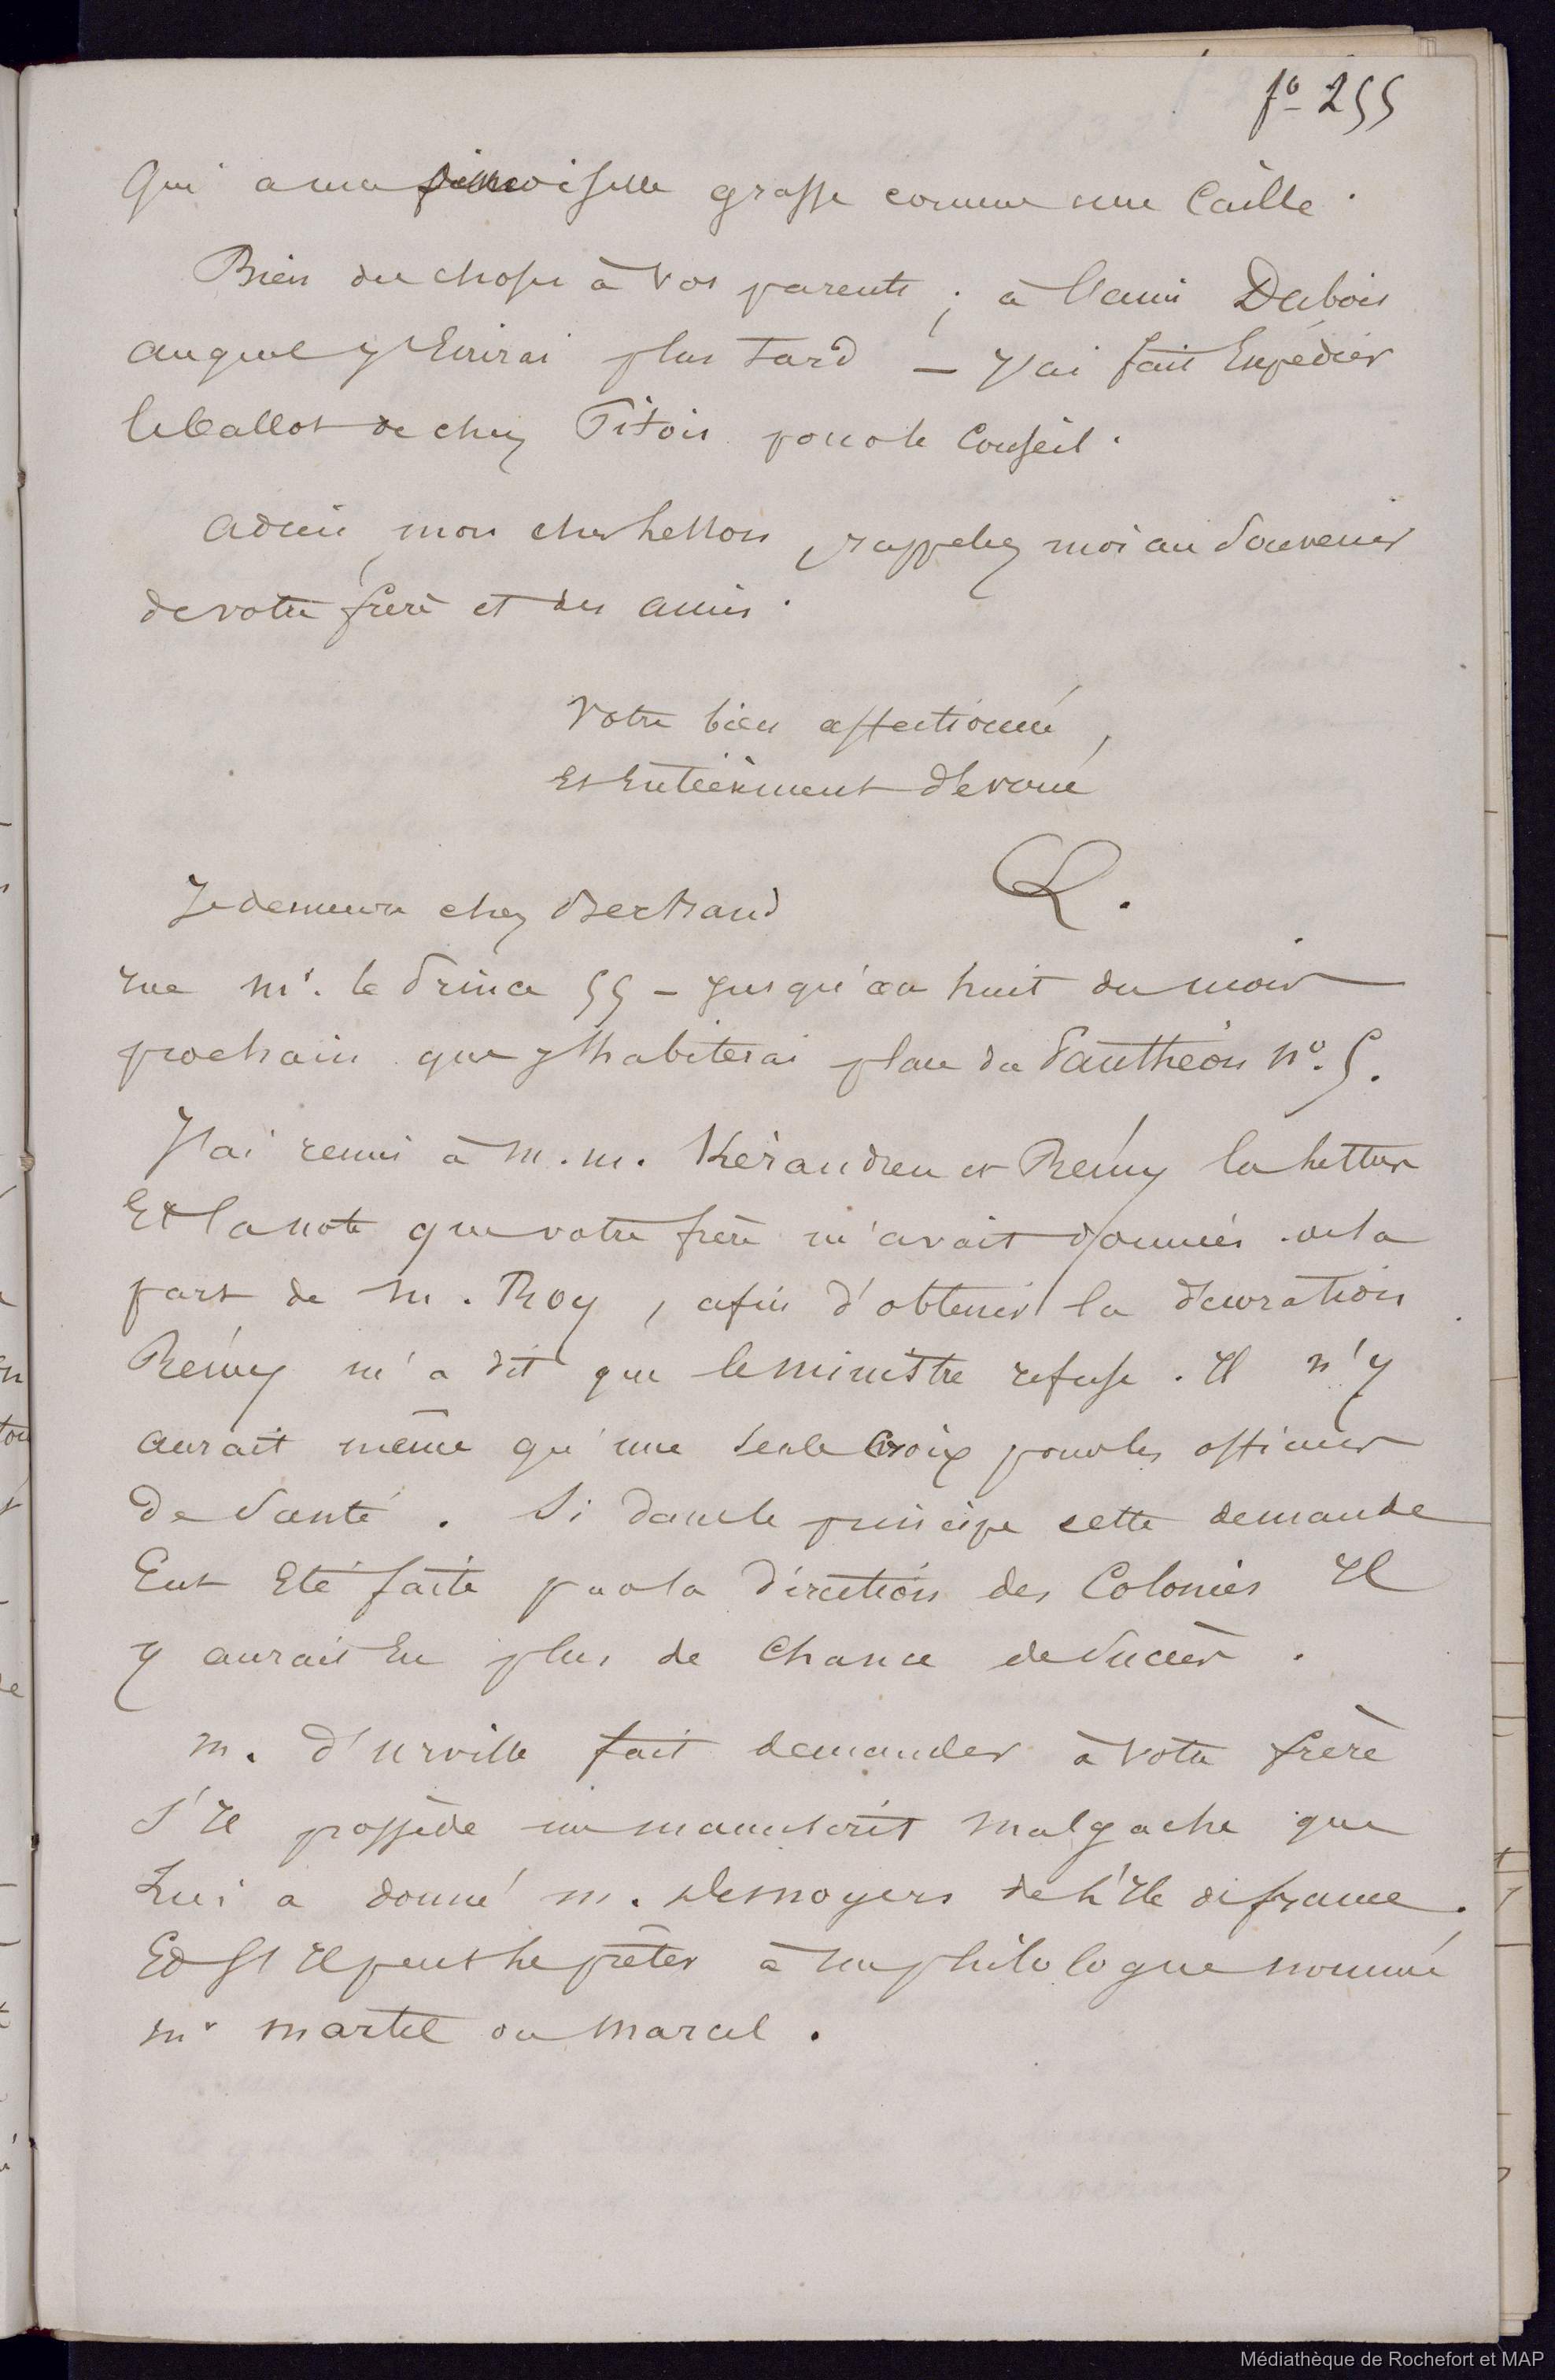 fo 255
Qui a une grasse comme une Caille.
Bien des choses à vos parents ; à l'ami Dubois
auquel j'Ecrirai plus tard — J'ai fait Expédier
le ballot de chez Pitois pour le Conseil.
adieu, mon cher Lesson, rappelez moi au Souvenir
de votre frère et des amis.
Votre bien affectionné,
Et Entièrement dévoué
L.
Je demeure chez Bertrand
rue Mr. le Prince 55 — Jusqu'au huit du mois
prochain que j'habiterai place du Panthéon No. 5.
J'ai remis à M.M. Kerandren et Rémy la lettre
Et la note que votre frère m'avait données de la
part de M. Roy, afin d'obtenir la décoration
Rémy m'a dit que le ministre refuse. Il n'y
aurait même qu'une seule Croix pour les officiers
de Santé. Si dans le principe cette demande
Eut Eté faite par la direction des Colonies Il
y aurait Eu plus de Chance de Succès.
M. d'Urville fait demander à votre frère
S'Il possède un manuscrit malgache que
Lui a donné M. Desnoyers de L'Ile de france.
Et S'Il peut le prêter à un philologue nommé
Mr Martel ou Marcel.
Médiathèque de Rochefort et MAP